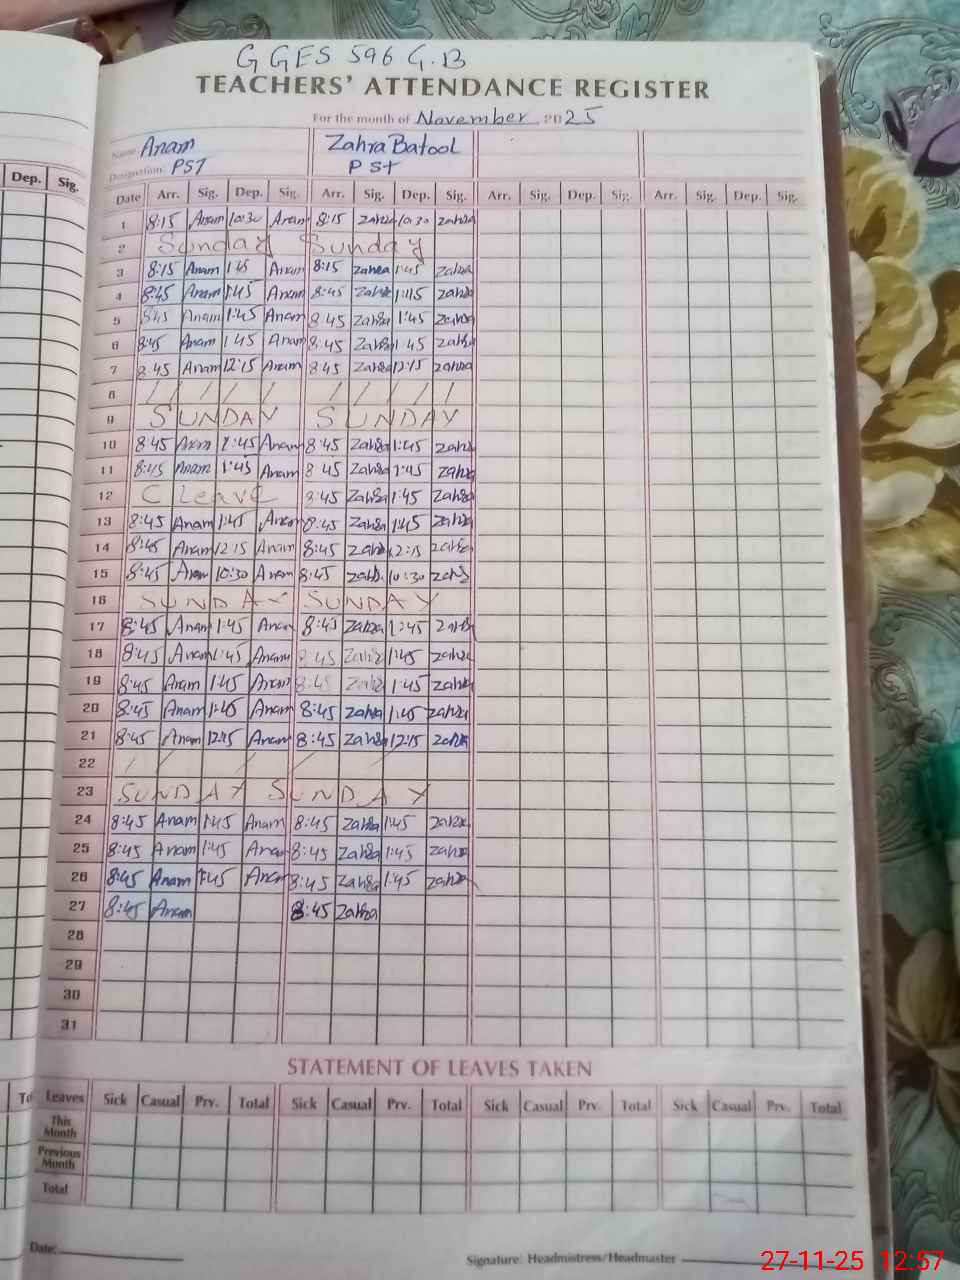 G GES 596 G.B
TEACHERS' ATTENDANCE REGISTER
For the month of November 2025
Name: Anam Zahra Batool
Designation: PST PST
Dep. Sig.
Date Arr. Sig. Dep. Sig. Arr. Sig. Dep. Sig. Arr. Sig. Dep. Sig. Arr. Sig. Dep. Sig.
1 8:15 Anam 10:30 Anam 8:15 Zahra 10:30 Zahra
2 Sunday Sunday
3 8:15 Anam 1:45 Anam 8:15 Zahra 1:45 Zahra
4 8:45 Anam 1:45 Anam 8:45 Zahra 1:45 Zahra
5 8:45 Anam 1:45 Anam 8:45 Zahra 1:45 Zahra
6 8:45 Anam 1:45 Anam 8:45 Zahra 1:45 Zahra
7 8:45 Anam 12:15 Anam 8:45 Zahra 12:15 Zahra
8 / / / / / / / /
9 SUNDAY SUNDAY
10 8:45 Anam 1:45 Anam 8:45 Zahra 1:45 Zahra
11 8:45 Anam 1:45 Anam 8:45 Zahra 1:45 Zahra
12 C Leave 8:45 Zahra 1:45 Zahra
13 8:45 Anam 1:45 Anam 8:45 Zahra 1:45 Zahra
14 8:45 Anam 12:15 Anam 8:45 Zahra 12:15 Zahra
15 8:45 Anam 10:30 Anam 8:45 Zahra 10:30 Zahra
16 SUNDAY SUNDAY
17 8:45 Anam 1:45 Anam 8:45 Zahra 1:45 Zahra
18 8:45 Anam 1:45 Anam 8:45 Zahra 1:45 Zahra
19 8:45 Anam 1:45 Anam 8:45 Zahra 1:45 Zahra
20 8:45 Anam 1:45 Anam 8:45 Zahra 1:45 Zahra
21 8:45 Anam 12:15 Anam 8:45 Zahra 12:15 Zahra
22 / / / / /
23 SUNDAY SUNDAY
24 8:45 Anam 1:45 Anam 8:45 Zahra 1:45 Zahra
25 8:45 Anam 1:45 Anam 8:45 Zahra 1:45 Zahra
26 8:45 Anam 1:45 Anam 8:45 Zahra 1:45 Zahra
27 8:45 Anam 8:45 Zahra
28
29
30
31
STATEMENT OF LEAVES TAKEN
Leaves Sick Casual Prv. Total Sick Casual Prv. Total Sick Casual Prv. Total Sick Casual Prv. Total
This Month
Previous Month
Total
Date:
Signature: Headmistress/Headmaster
27-11-25 12:57